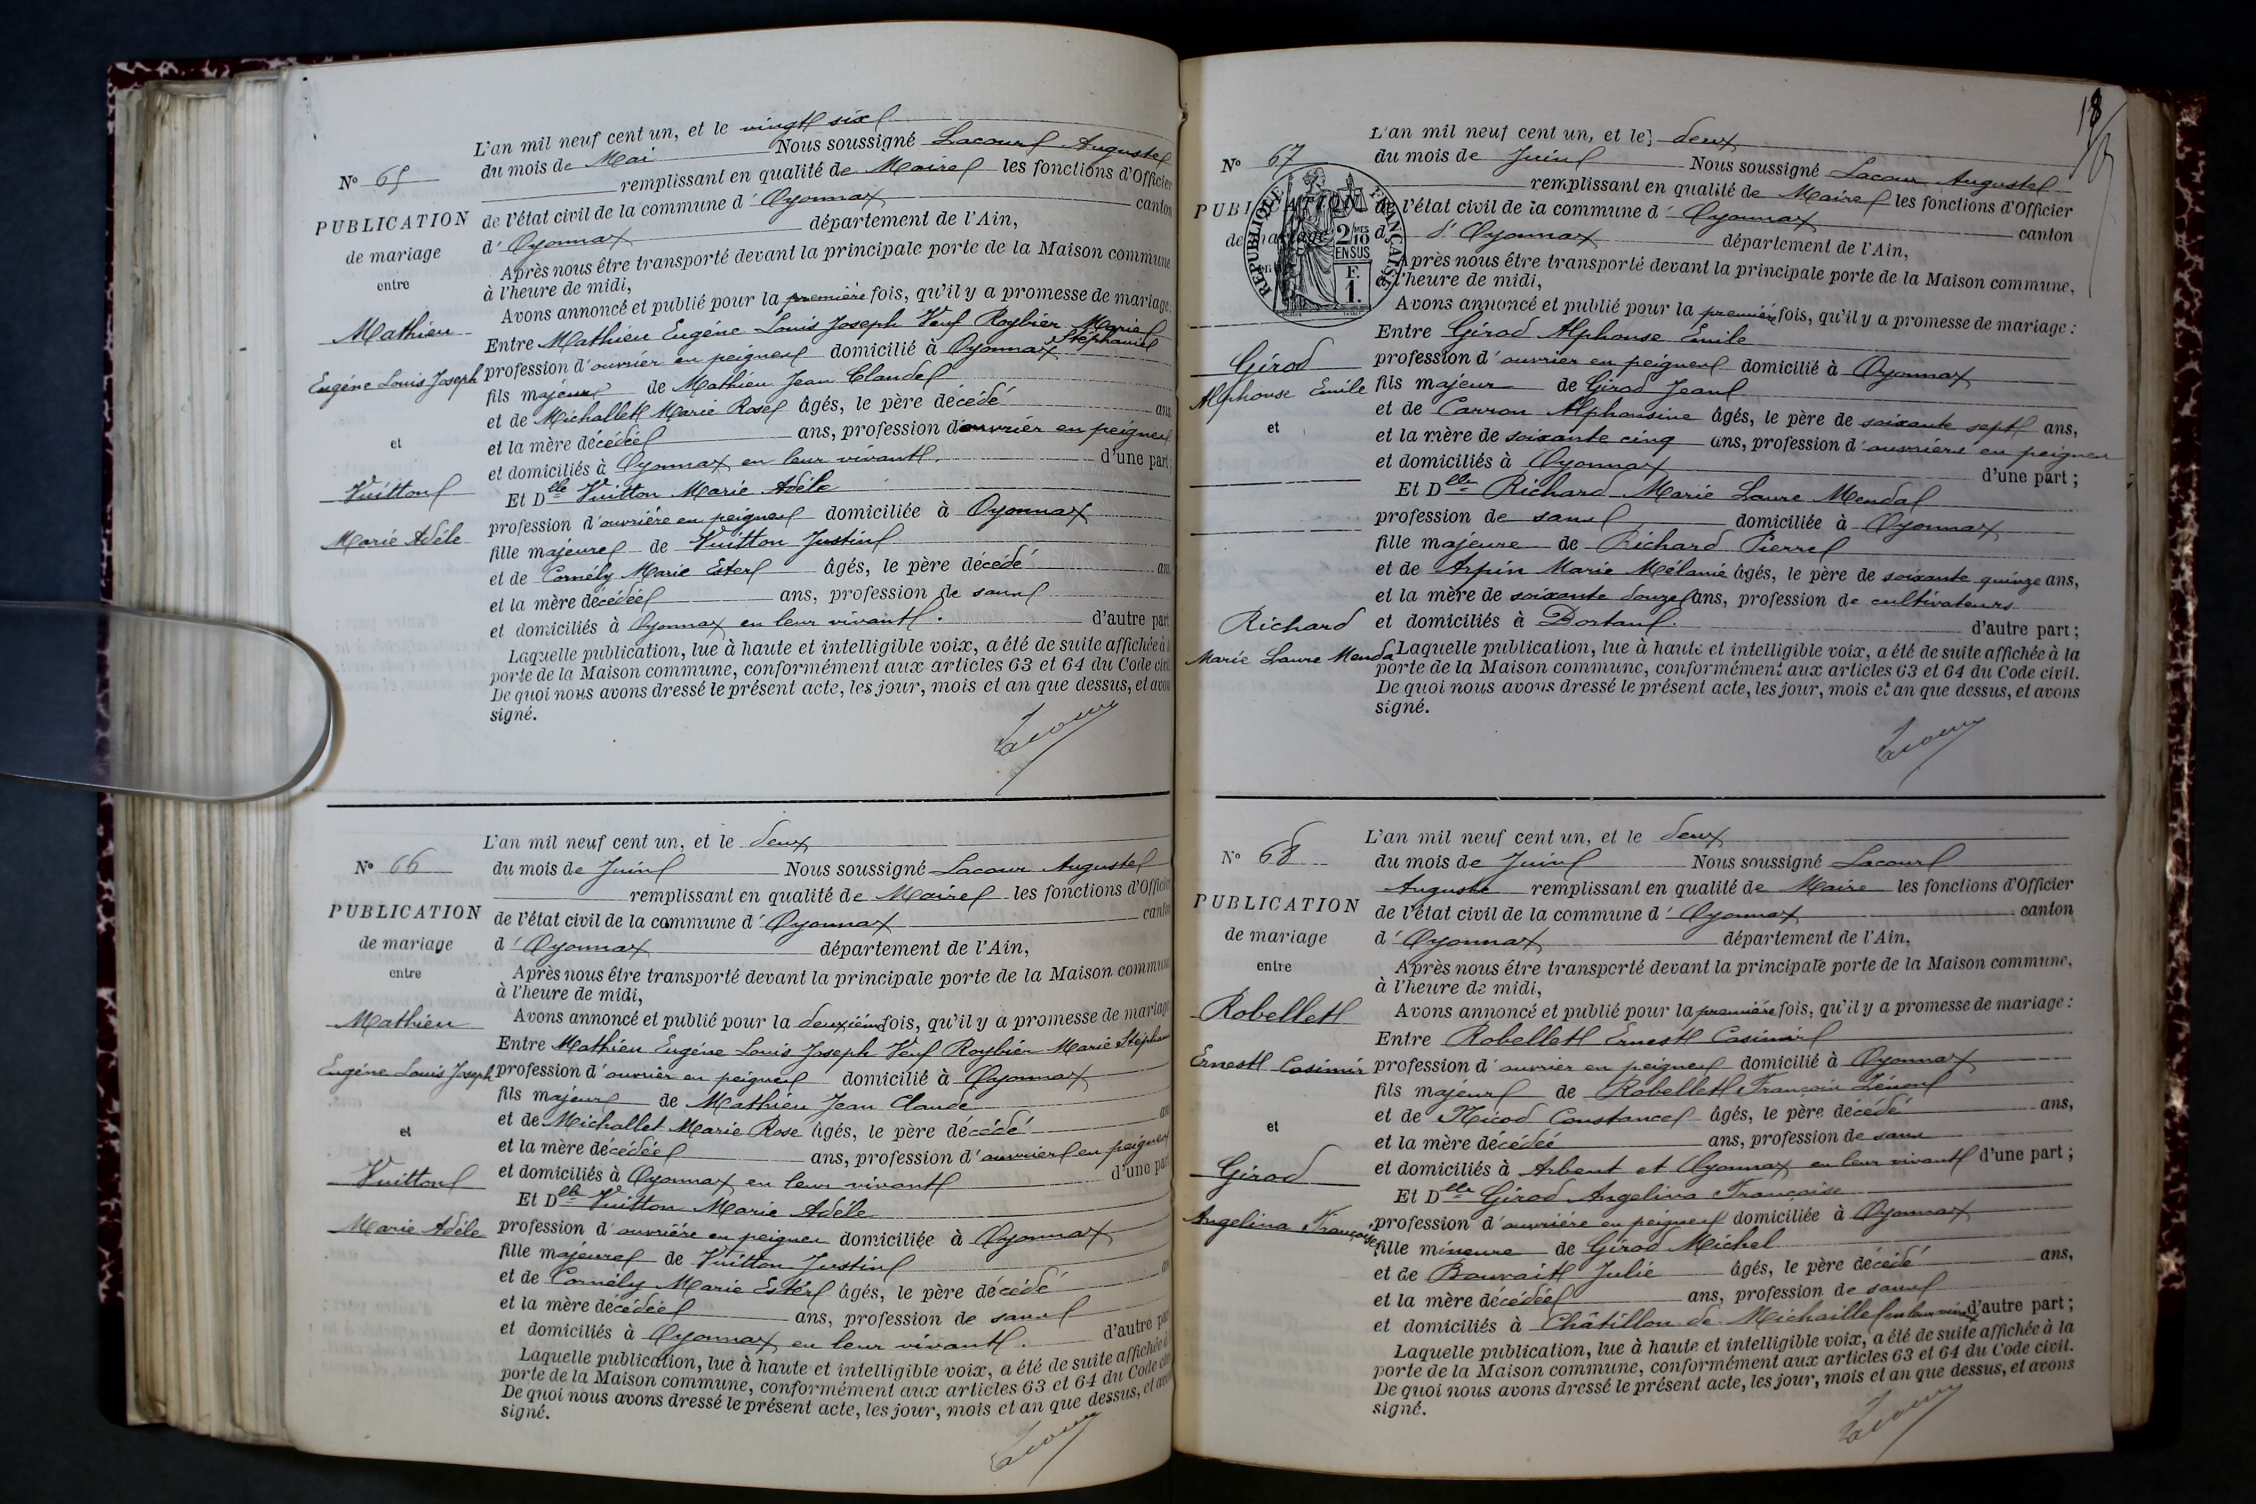 L'an mil neuf cent un, et le vingt six
du mois de Mai Nous soussigné Lacour Auguste
Nº 65
remplissant en qualité de Maire les fonctions d'Officier
PUBLICATION
de l'état civil de la commune d' Oyonnax canton
d' Oyonnax département de l'Ain,
de mariage
Après nous être transporté devant la principale porte de la Maison commune
entre
à l'heure de midi,
Avons annoncé et publié pour la première fois, qu'il y a promesse de mariage:
Mathieu
Entre Mathieu Eugène Louis Joseph Veuf Roybier Marie Stéphanie
Eugène Louis Joseph
profession d'ouvrier en peignes domicilié à Oyonnax
fils majeur de Mathieu Jean Claude
et de Michallet Marie Rose âgés, le père décédé ans
et
et la mère décédée ans, profession d'ouvrier en peignes
et domiciliés à Oyonnax en leur vivant. d'une part;
Vuitton
Et Dlle Vuitton Marie Adèle
profession d'ouvrière en peignes domiciliée à Oyonnax
Marie Adèle
fille majeure de Vuitton Justin
et de Cornély Marie Ester âgés, le père décédé ans
et la mère décédée ans, profession de sans
et domiciliés à Oyonnax en leur vivant. d'autre part
Laquelle publication, lue à haute et intelligible voix, a été de suite affichée à
porte de la Maison commune, conformément aux articles 63 et 64 du Code civil
De quoi nous avons dressé le présent acte, les jour, mois et an que dessus, et avons
signé.
Lacour
L'an mil neuf cent un, et le deux
Nº 66
du mois de Juin Nous soussigné Lacour Auguste
remplissant en qualité de Maire les fonctions d'Officier
PUBLICATION
de l'état civil de la commune d' Oyonnax canton
de mariage
d' Oyonnax département de l'Ain,
entre
Après nous être transporté devant la principale porte de la Maison commune
à l'heure de midi,
Avons annoncé et publié pour la deuxième fois, qu'il y a promesse de mariage
Mathieu
Entre Mathieu Eugène Louis Joseph Veuf Roybier Marie Stéphan
Eugène Louis Joseph
profession d'ouvrier en peignes domicilié à Oyonnax
fils majeur de Mathieu Jean Claude
et de Michallet Marie Rose âgés, le père décédé ans
et
et la mère décédée ans, profession d'ouvrier en peignes
et domiciliés à Oyonnax en leur vivant d'une part
Vuitton
Et Dlle Vuitton Marie Adèle
Marie Adèle
profession d'ouvrière en peignes domiciliée à Oyonnax
fille majeure de Vuitton Justin
et de Cornély Marie Ester âgés, le père décédé an
et la mère décédée ans, profession de sans
et domiciliés à Oyonnax en leur vivant. d'autre part
Laquelle publication, lue à haute et intelligible voix, a été de suite affichée à
porte de la Maison commune, conformément aux articles 63 et 64 du Code civ
De quoi nous avons dressé le présent acte, les jour, mois et an que dessus, et avo
signé.
Lacour
18
L'an mil neuf cent un, et le deux
Nº 67
du mois de Juin Nous soussigné Lacour Auguste
remplissant en qualité de Maire les fonctions d'Officier
PUBLICATION
de l'état civil de la commune d' Oyonnax canton
de mariage
d' d'Oyonnax département de l'Ain,
REPUBLIQUE FRANÇAISE
2/10 MES
EN SUS
F. 1.
Après nous être transporté devant la principale porte de la Maison commune,
à l'heure de midi,
Avons annoncé et publié pour la première fois, qu'il y a promesse de mariage:
Entre Girod Alphonse Emile
Girod
profession d'ouvrier en peignes domicilié à Oyonnax
Alphonse Emile
fils majeur de Girod Jean
et de Carron Alphonsine âgés, le père de soixante sept ans,
et
et la mère de soixante cinq ans, profession d'ouvrière en peignes
et domiciliés à Oyonnax d'une part;
Et Dlle Richard Marie Laure Menda
profession de sans domiciliée à Oyonnax
fille majeure de Richard Pierre
et de Arpin Marie Mélanie âgés, le père de soixante quinze ans,
et la mère de soixante douze ans, profession de cultivateurs
Richard
et domiciliés à Dortan. d'autre part;
Marie Laure Menda
Laquelle publication, lue à haute et intelligible voix, a été de suite affichée à la
porte de la Maison commune, conformément aux articles 63 et 64 du Code civil.
De quoi nous avons dressé le présent acte, les jour, mois et an que dessus, et avons
signé.
Lacour
L'an mil neuf cent un, et le deux
Nº 68
du mois de Juin Nous soussigné Lacour
Auguste remplissant en qualité de Maire les fonctions d'Officier
PUBLICATION
de l'état civil de la commune d' Oyonnax canton
de mariage
d' Oyonnax département de l'Ain,
entre
Après nous être transporté devant la principale porte de la Maison commune,
à l'heure de midi,
Robellet
Avons annoncé et publié pour la première fois, qu'il y a promesse de mariage:
Entre Robellet Ernest Casimir
Ernest Casimir
profession d'ouvrier en peignes domicilié à Oyonnax
fils majeur de Robellet François Zénon
et de Nicod Constance âgés, le père décédé ans,
et
et la mère décédée ans, profession de sans
et domiciliés à Arbent et Oyonnax en leur vivant d'une part;
Girod
Et Dlle Girod Angelina Françoise
Angelina Françoise
profession d'ouvrière en peignes domiciliée à Oyonnax
fille mineure de Girod Michel
et de Bouvait Julie âgés, le père décédé ans,
et la mère décédée ans, profession de sans
et domiciliés à Châtillon de Michaille en leur vivant d'autre part;
Laquelle publication, lue à haute et intelligible voix, a été de suite affichée à la
porte de la Maison commune, conformément aux articles 63 et 64 du Code civil.
De quoi nous avons dressé le présent acte, les jour, mois et an que dessus, et avons
signé.
Lacour